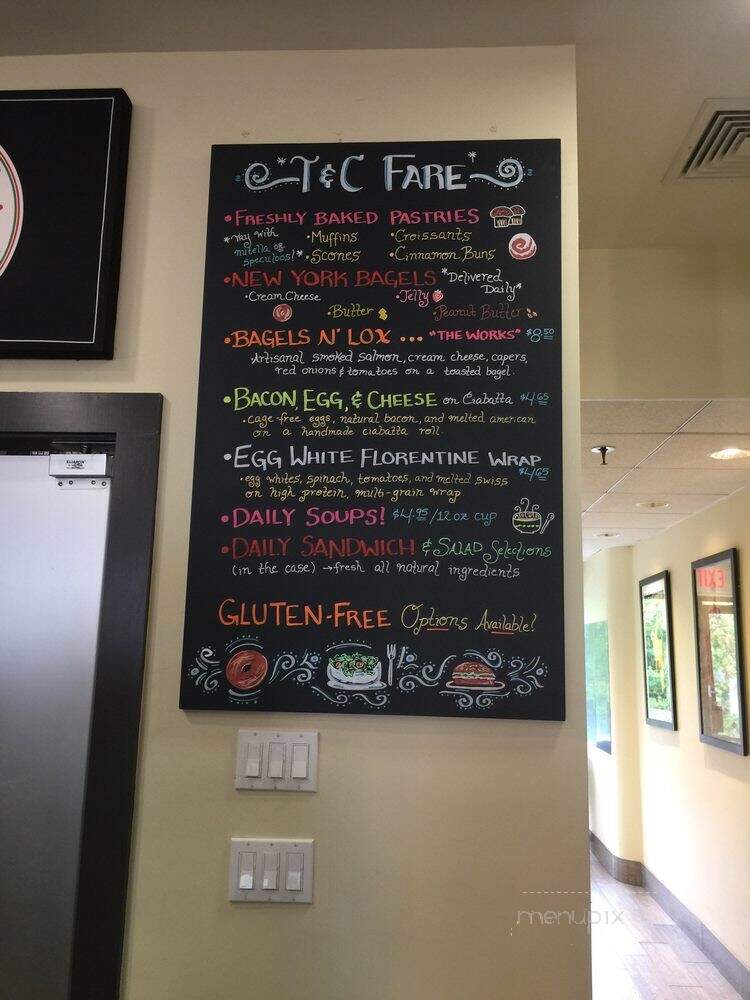 "T&C FARE"
•FRESHLY BAKED PASTRIES
*try with nutella or speculoos!*
•Muffins •Croissants
•Scones •Cinnamon Buns
•NEW YORK BAGELS *Delivered Daily*
•Cream Cheese •Jelly
•Butter •Peanut Butter
•BAGELS N' LOX ... "THE WORKS" $8.50
•Artisanal smoked salmon, cream cheese, capers,
red onions & tomatoes on a toasted bagel.
•BACON, EGG, & CHEESE on Ciabatta $4.65
•cage-free eggs, natural bacon, and melted american
on a handmade ciabatta roll
•EGG WHITE FLORENTINE WRAP
$4.65
•egg whites, spinach, tomatoes, and melted swiss
on high protein, multi-grain wrap.
•DAILY SOUPS! $4.95/12 oz cup
•DAILY SANDWICH & SALAD Selections
(in the case) →fresh all natural ingredients
GLUTEN-FREE Options Available!
EXIT
menupix